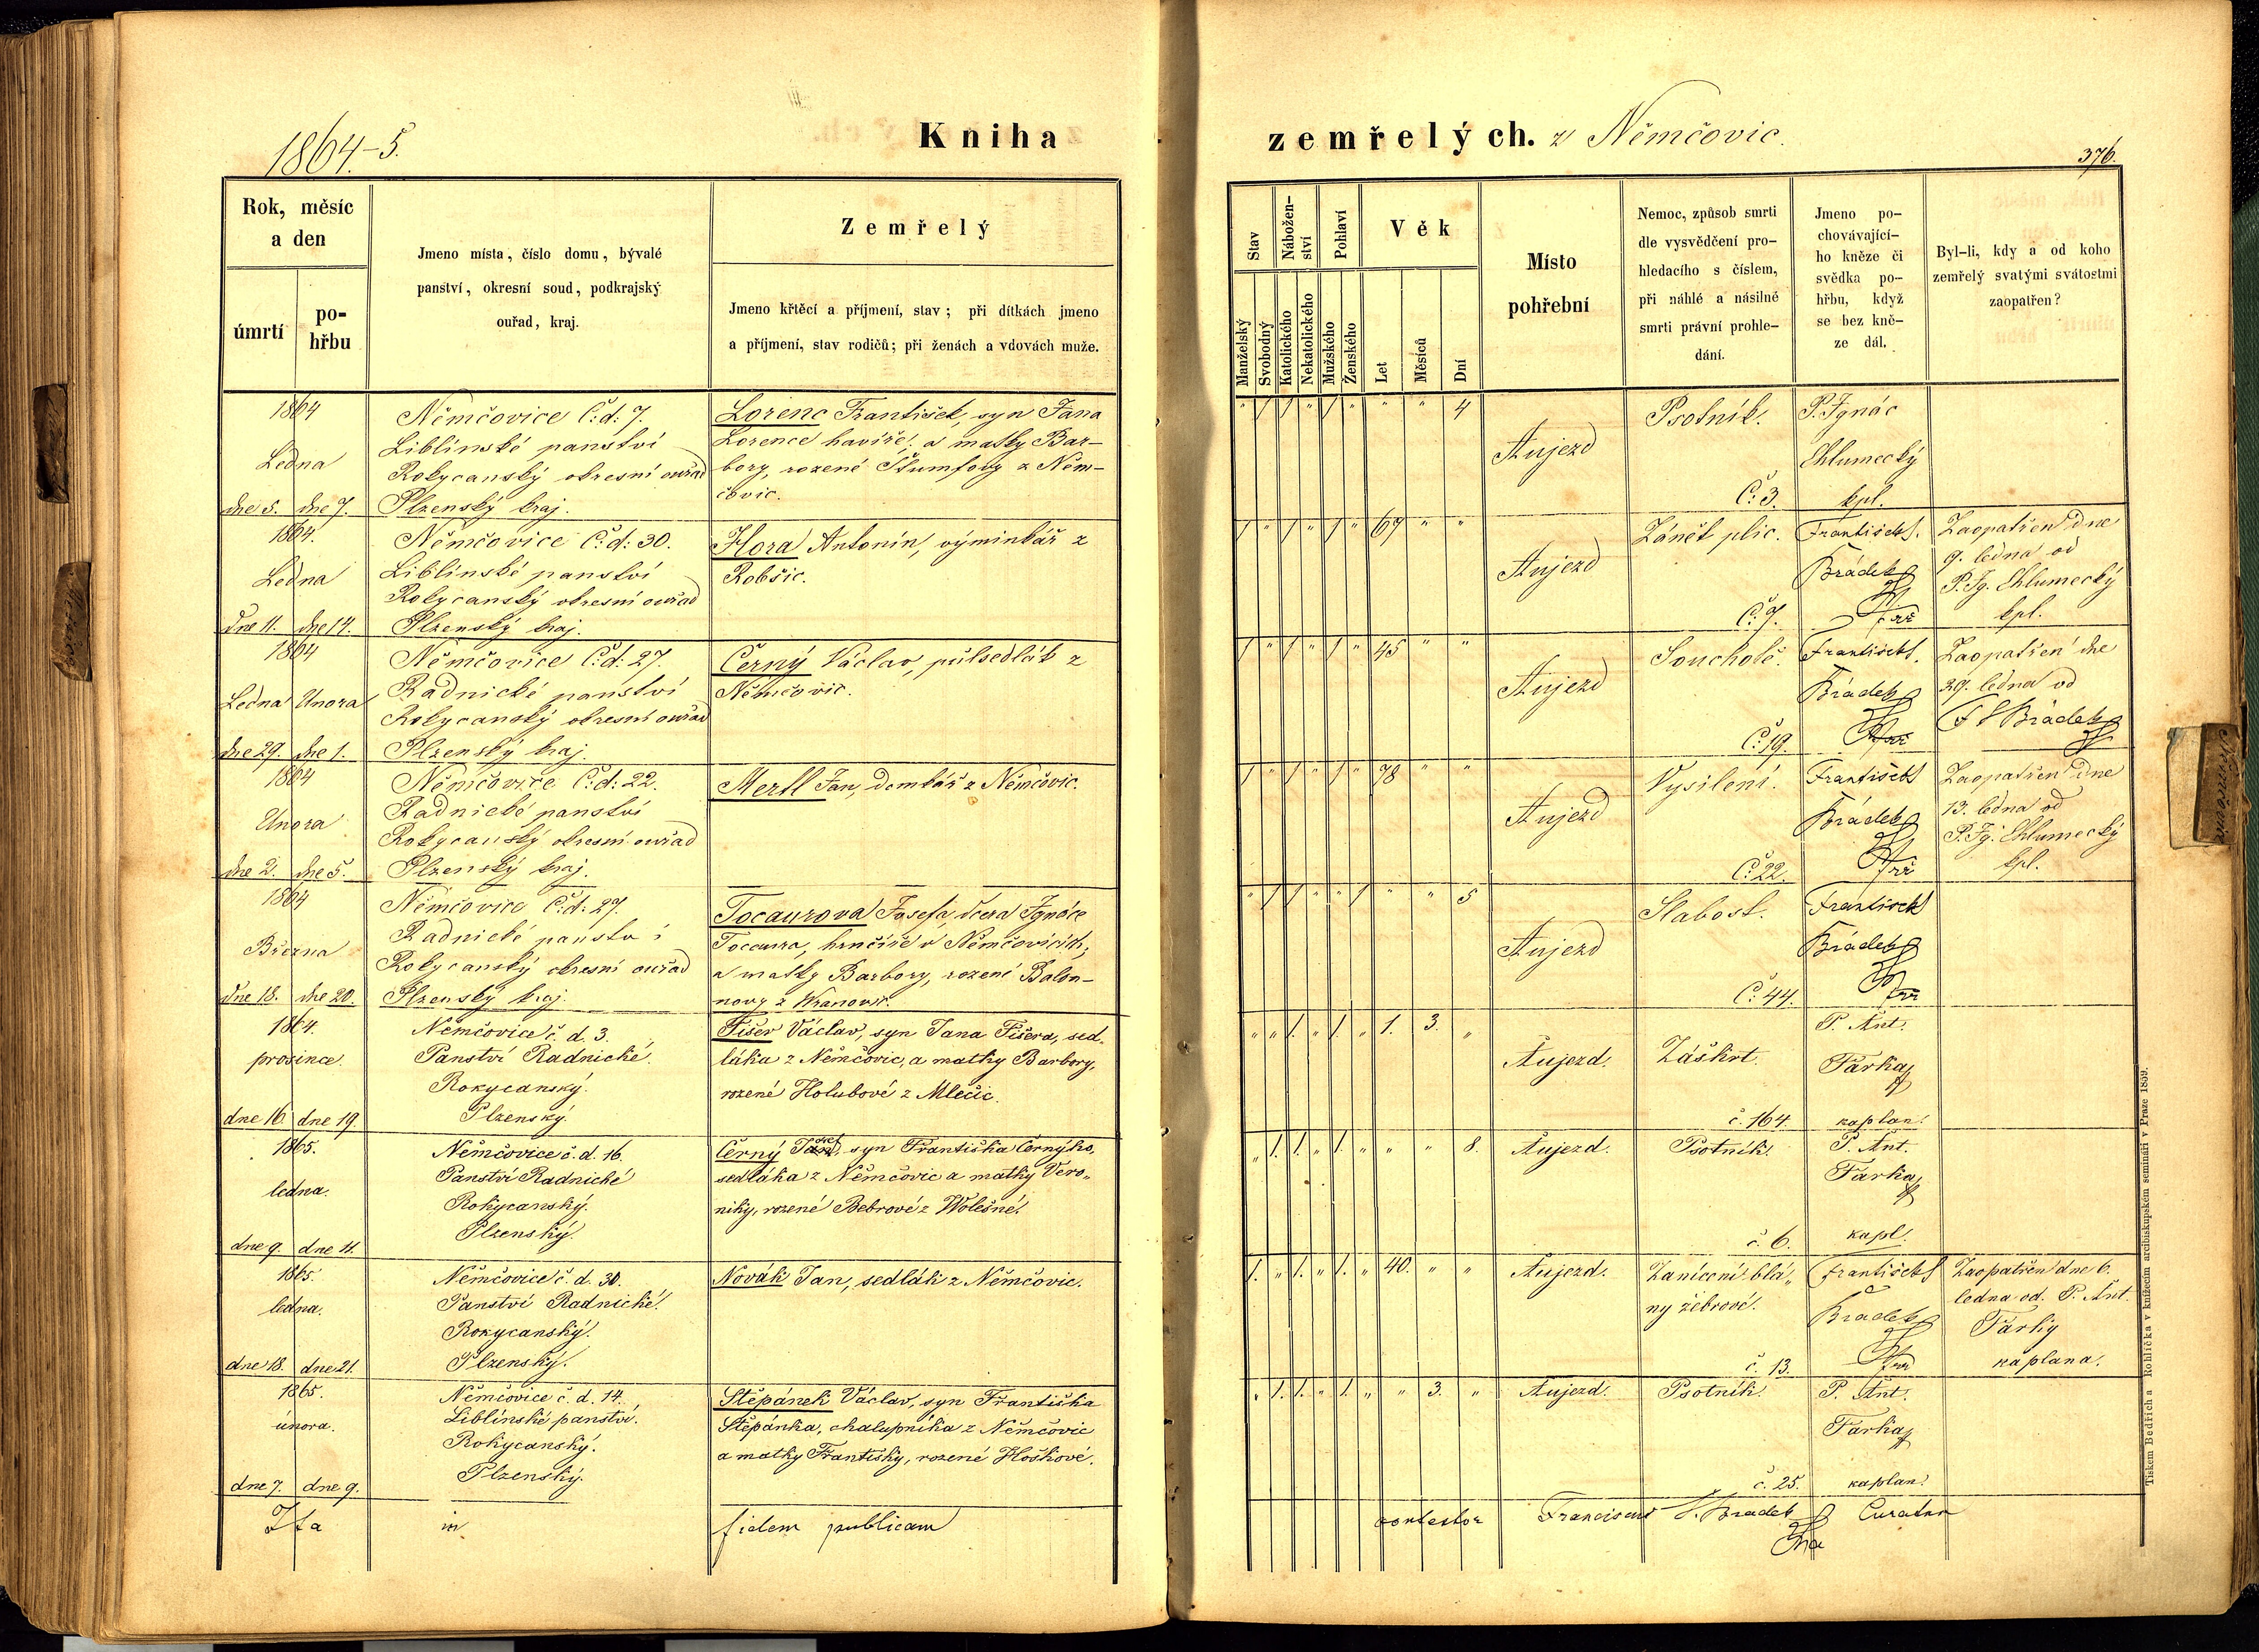 1864-5.
Kniha
zemřelých. z Němčovic.
376.
Rok, měsíc
a den
úmrtí
po-
hřbu
Jmeno místa, číslo domu, bývalé
panství, okresní soud, podkrajský
ouřad, kraj.
Zemřelý
Jmeno křtěcí a příjmení, stav; při dítkách jmeno
a příjmení, stav rodičů; při ženách a vdovách muže.
Stav
Nábožen-
ství
Pohlaví
Věk
Manželský
Svobodný
Katolického
Nekatolického
Mužského
Ženského
Let
Měsíců
Dní
Místo
pohřební
Nemoc, způsob smrti
dle vysvědčení pro-
hledacího s číslem,
při náhlé a násilné
smrti právní prohle-
dání.
Jmeno po-
chovávající-
ho kněze či
svědka po-
hřbu, když
se bez kně-
ze dál.
Byl-li, kdy a od koho
zemřelý svatými svátostmi
zaopatřen?
1864
Ledna
dne 5. dne 7.
Němčovice Č: d: 7.
Liblínské panství
Rokycanský okresní ouřad
Plzenský kraj.
Lorenc František, syn Jana
Lorence havíře, a matky Bar-
bory, rozené Štumfovy z Něm-
čovic.
" / / " / " " " 4
Aujezd
Psotník.
Č: 3.
P. Ignác
Chlumecký
kpl.
1864.
Ledna
dne 11. dne 14.
Němčovice Č: d: 30.
Liblínské panství
Rokycanský okresní ouřad
Plzenský kraj.
Hora Antonín, výminkář z
Robšic.
/ " / " / " 67 " "
Aujezd
Zánět plic.
Č: 7.
František S.
Brádek
farář
Zaopatřen dne
9. ledna od
P. Ig. Chlumecký
kpl.
1864
Ledna Unora
dne 29. dne 1.
Němčovice Č: d: 27.
Radnické panství
Rokycanský okresní ouřad
Plzenský kraj.
Černý Václav, půlsedlák z
Němčovic.
/ " / " / " 45 " "
Aujezd
Souchotě.
Č: 19.
František S.
Brádek
farář
Zaopatřen dne
29. ledna od
F S Brádek
1864
Unora
dne 2. dne 5.
Němčovice Č: d: 22.
Radnické panství
Rokycanský okresní ouřad
Plzenský kraj.
Mertl Jan, domkář z Němčovic.
/ " / " / " 78 " "
Aujezd
Vysílení.
Č: 22.
František S
Brádek
farář
Zaopatřen dne
13. ledna od
P. Ig. Chlumecký
kpl.
1864
Března
dne 18. dne 20.
Němčovice Č: d: 27.
Radnické panství
Rokycanský okresní ouřad
Plzenský kraj.
Tocaurova Josefa, dcera Ignáce
Tocaura, hrnčíře v Němčovicích;
a matky Barbory, rozené Balon-
novy z Wranovic.
" / / " " / " " 5
Aujezd
Slabost.
Č: 44.
František S
Brádek
farář
1864.
prosince.
dne 16. dne 19.
Němčovice č. d. 3.
Panství Radnické.
Rokycanský.
Plzenský.
Fišer Václav, syn Jana Fišera, sed-
láka z Němčovic, a matky Barbory,
rozené Holubové z Mlečic.
" " 1. " 1. " 1. 3. "
Aujezd.
Záškrt.
č. 164.
P. Ant.
Farka
kaplan.
1865.
ledna.
dne 9. dne 11.
Němčovice č. d. 16.
Panství Radnické
Rokycanský.
Plzenský.
Černý Jan, syn Františka Černýho,
sedláka z Němčovic a matky Vero-
niky, rozené Bebrové z Wolešné.
" 1. 1. " 1. " " " 8.
Aujezd.
Psotník.
č. 6.
P. Ant.
Farka
kapl.
1865.
ledna.
dne 18. dne 21.
Němčovice č. d. 30.
Panství Radnické.
Rokycanský.
Plzenský.
Novák Jan, sedlák z Němčovic.
1. " 1. " 1. " 40. " "
Aujezd.
Zanícení blá-
ny žebrové.
č. 13.
František S
Brádek
farář
Zaopatřen dne 6.
ledna od P. Ant.
Farky
kaplana.
1865.
února.
dne 7. dne 9.
Němčovice č. d. 14.
Liblínské panství.
Rokycanský.
Plzenský.
Štěpánek Václav, syn Františka
Štěpánka, chalupníka z Němčovic
a matky Františky, rozené Hoškové.
" 1. 1. " 1. " " 3. "
Aujezd.
Psotník.
č. 25.
P. Ant.
Farka
kaplan.
Ita in fidem publicam
contestor Franciscus S. Bradek Curatus
Tiskem Bedřicha Rohlíčka v knížecím arcibiskupském semináři v Praze 1859.